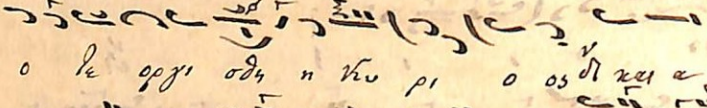 ο τε οργι σθη η Κυ ρι ο ος δι και α